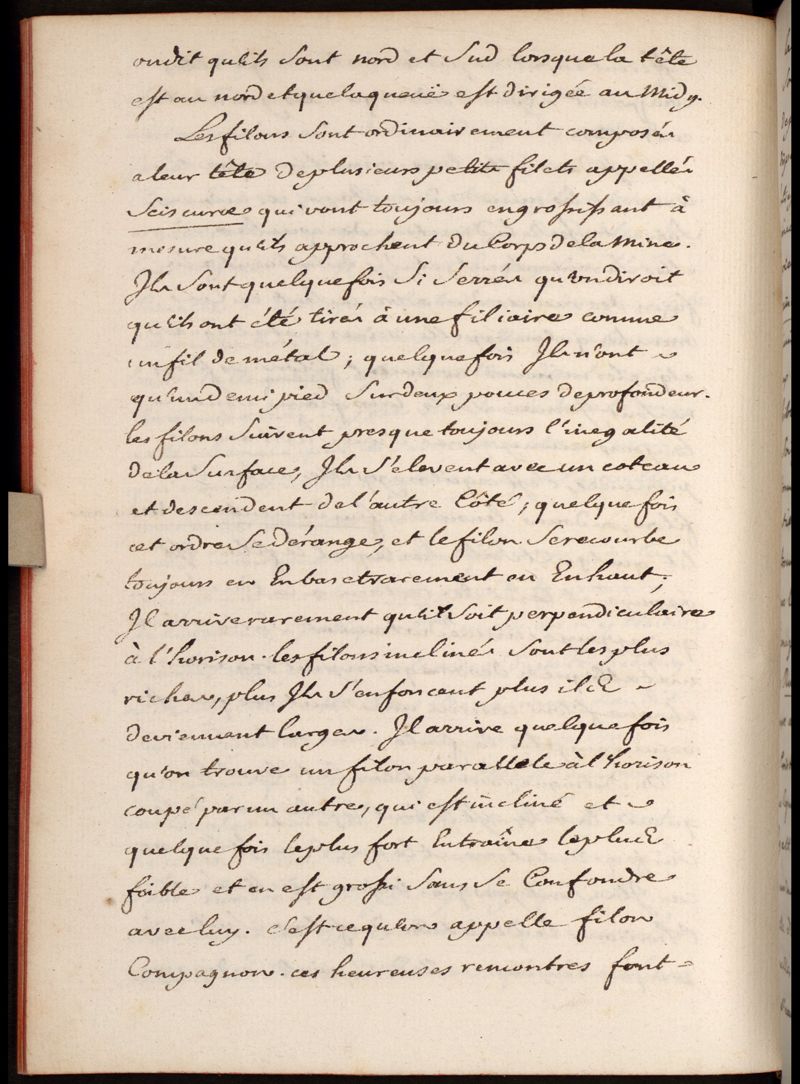 on dit qu'ils sont nord et sud lorsque la tête
est au nord et que la queuë est dirigée au Midy.
Les filons sont ordinairement composés
a leur tête de plusieurs petits filets appellés
qui vont toujours en grossissant à
mesure qu'ils approchent du Corps de la Mine.
Ils sont quelquefois si serrés qu'on diroit
qu'ils ont été tirés à une filiaire comme
un fil de métal ; quelquefois Ils n'ont
qu'un demi pied sur deux pouces de profondeur.
les filons suivent presque toujours l'inegalité
de la surface, Ils s'elevent avec un coteau
et descendent de l'autre Côté ; quelquefois
cet ordre se dérange, et le filon se recourbe
toujours en En bas et rarement en En haut ;
Il arrive rarement qu'il soit perpendiculaire
à l'horison. les filons inclinés sont les plus
riches, plus Ils s'enfoncent plus ils
deviennent larges. Il arrive quelquefois
qu'on trouve un filon parallele à l'horison
coupé par un autre, qui est incliné et
quelquefois le plus fort Entraîne le plus
foible et en est grossi sans se Confondre
avec luy. c'est ce qu'on appelle filon
Compagnon. ces heureuses rencontres font